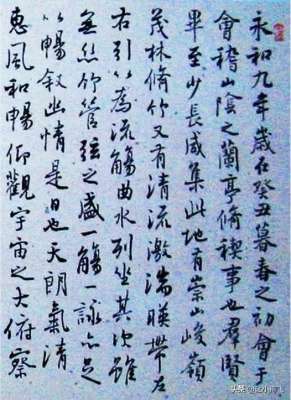 永和九年歲在癸丑暮春之初會于
會稽山陰之蘭亭脩禊事也群賢
畢至少長咸集此地有崇山峻嶺
茂林脩竹又有清流激湍暎帶左
右引以為流觴曲水列坐其次雖
無絲竹管弦之盛一觴一詠亦足
以暢敘幽情是日也天朗氣清
惠風和暢仰觀宇宙之大俯察